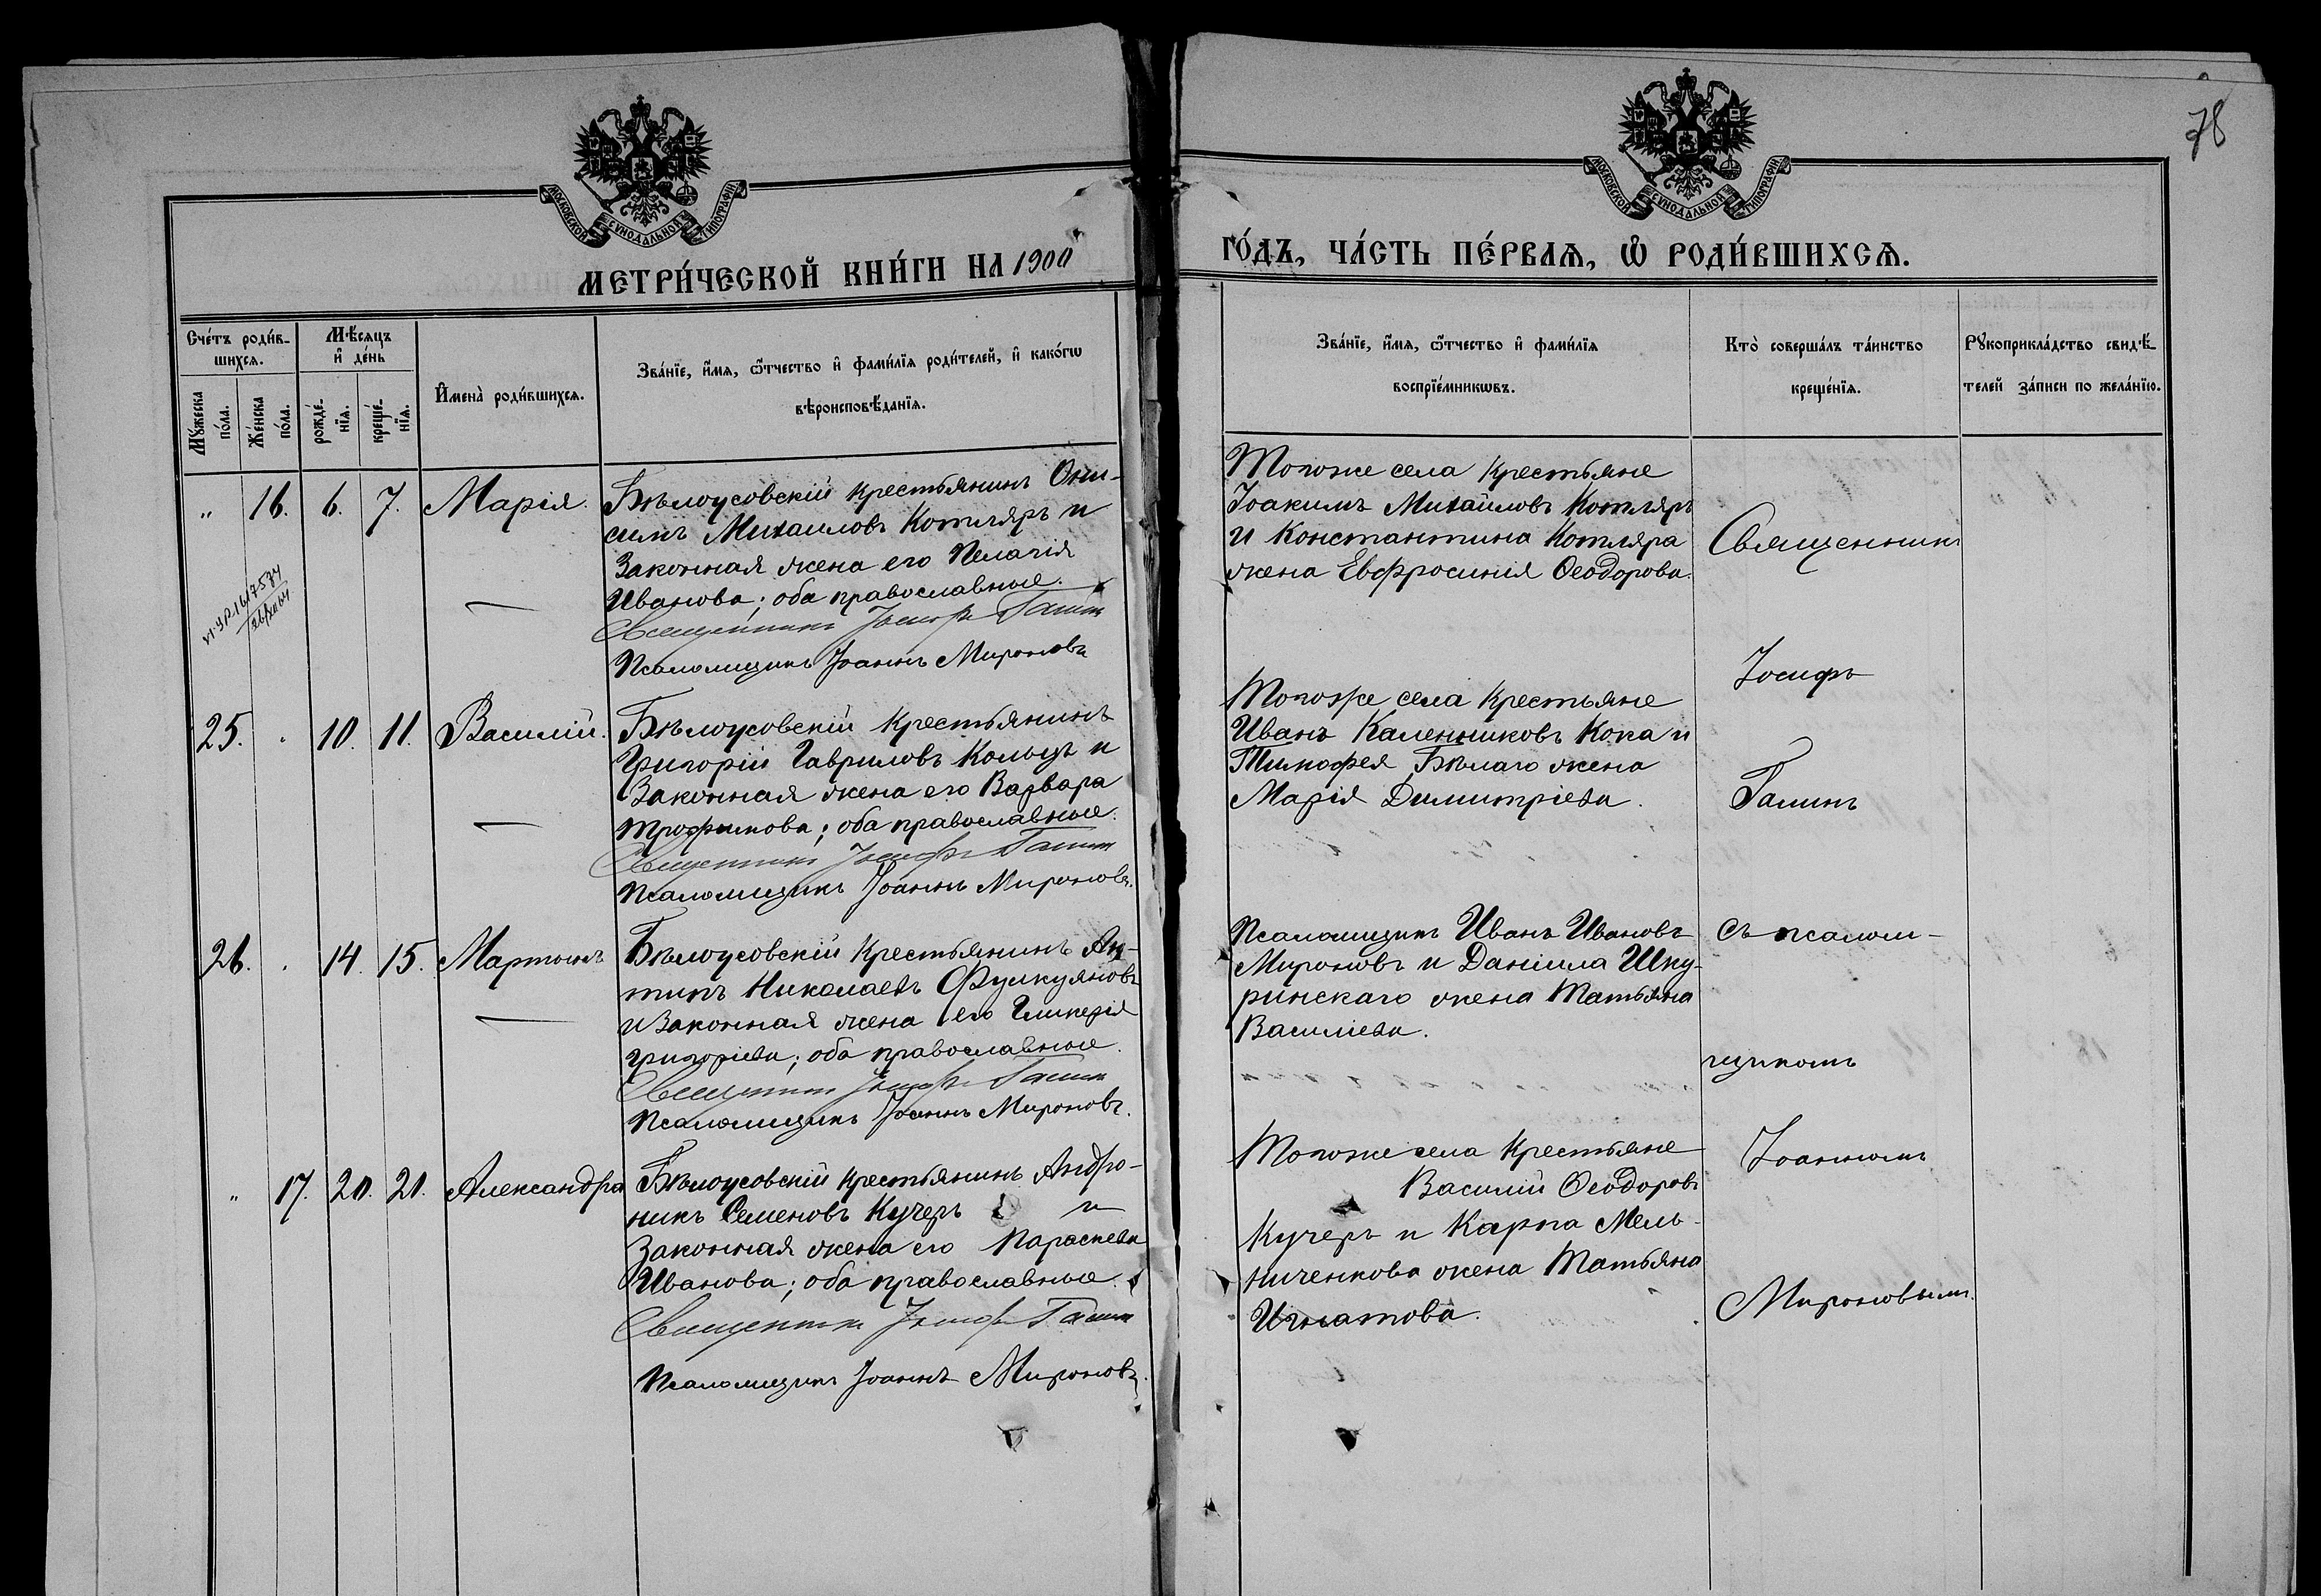 78
МОСКОВСКОЙ СУНОДАЛЬНОЙ ТИПОГРАФІИ
МОСКОВСКОЙ СУНОДАЛЬНОЙ ТИПОГРАФІИ
МЕТРИ́ЧЕСКОЙ КНИ́ГИ НА 1900
ГО́ДЪ, ЧА́СТЬ ПЕ́РВАѦ, Ѽ РОДИ́ВШИХСѦ.
Сче́тъ роди́в-
шихсѧ.
Мꙋ́жеска
по́ла.
Же́нска
по́ла.
Мѣ́сѧцъ
и҆ де́нь
рожде́-
нїѧ.
креще́-
нїѧ.
И҆мена̀ роди́вшихсѧ.
Зва́нїе, и҆́мѧ, ѻ҆́тчество и҆ фами́лїѧ роди́телей, и҆ како́гѡ
вѣроисповѣ́данїѧ.
Зва́нїе, и҆́мѧ, ѻ҆́тчество и҆ фами́лїѧ
воспрїе́мникѡвъ.
Кто̀ соверша́лъ та́инство
креще́нїѧ.
Рꙋкоприкла́дство свидѣ́-
телей за́писи по жела́нїю.
„ 16. 6. 7. Марія.
Бѣлоусовскій крестьянинъ Они-
симъ Михаиловъ Котляръ и
Законная жена его Пелагія
Иванова; оба православные.
Священникъ Іосифъ Галинъ
Псаломщикъ Іоаннъ Мироновъ
Тогоже села крестьяне
Іоакимъ Михаиловъ Котляръ
и Константина Котляра
жена Евфросинія Ѳеодорова.
25. 10. 11. Василій.
Бѣлоусовскій крестьянинъ
Григорій Гавриловъ Кольцъ и
Законная жена его Варвара
Трофимова; оба православные.
Священникъ Іосифъ Галинъ
Псаломщикъ Іоаннъ Мироновъ.
Тогоже села крестьяне
Иванъ Каленниковъ Кока и
Тимофея Бѣлаго жена
Марія Димитріева.
26. 14. 15. Мартинъ
Бѣлоусовскій крестьянинъ Ан-
типъ Николаевъ
и Законная жена его Гликерія
Григоріева; оба православные.
Священникъ Іосифъ Галинъ
Псаломщикъ Іоаннъ Мироновъ.
Псаломщикъ Иванъ Ивановъ
Мироновъ и Даніила Шку-
ринскаго жена Татьяна
Василіева.
„ 17. 20. 21. Александра
Бѣлоусовскій крестьянинъ Андро-
никъ Семеновъ Кучеръ и
Законная жена его Параскева
Иванова; оба православные.
Священникъ Іосифъ Галинъ
Псаломщикъ Іоаннъ Мироновъ.
Тогоже села крестьяне
Василій Ѳеодоровъ
Кучеръ и Карпа Мель-
ниченкова жена Татьяна
Игнатова.
Священникъ
Іосифъ
Галинъ
съ псалом-
щикомъ
Іоанномъ
Мироновымъ.